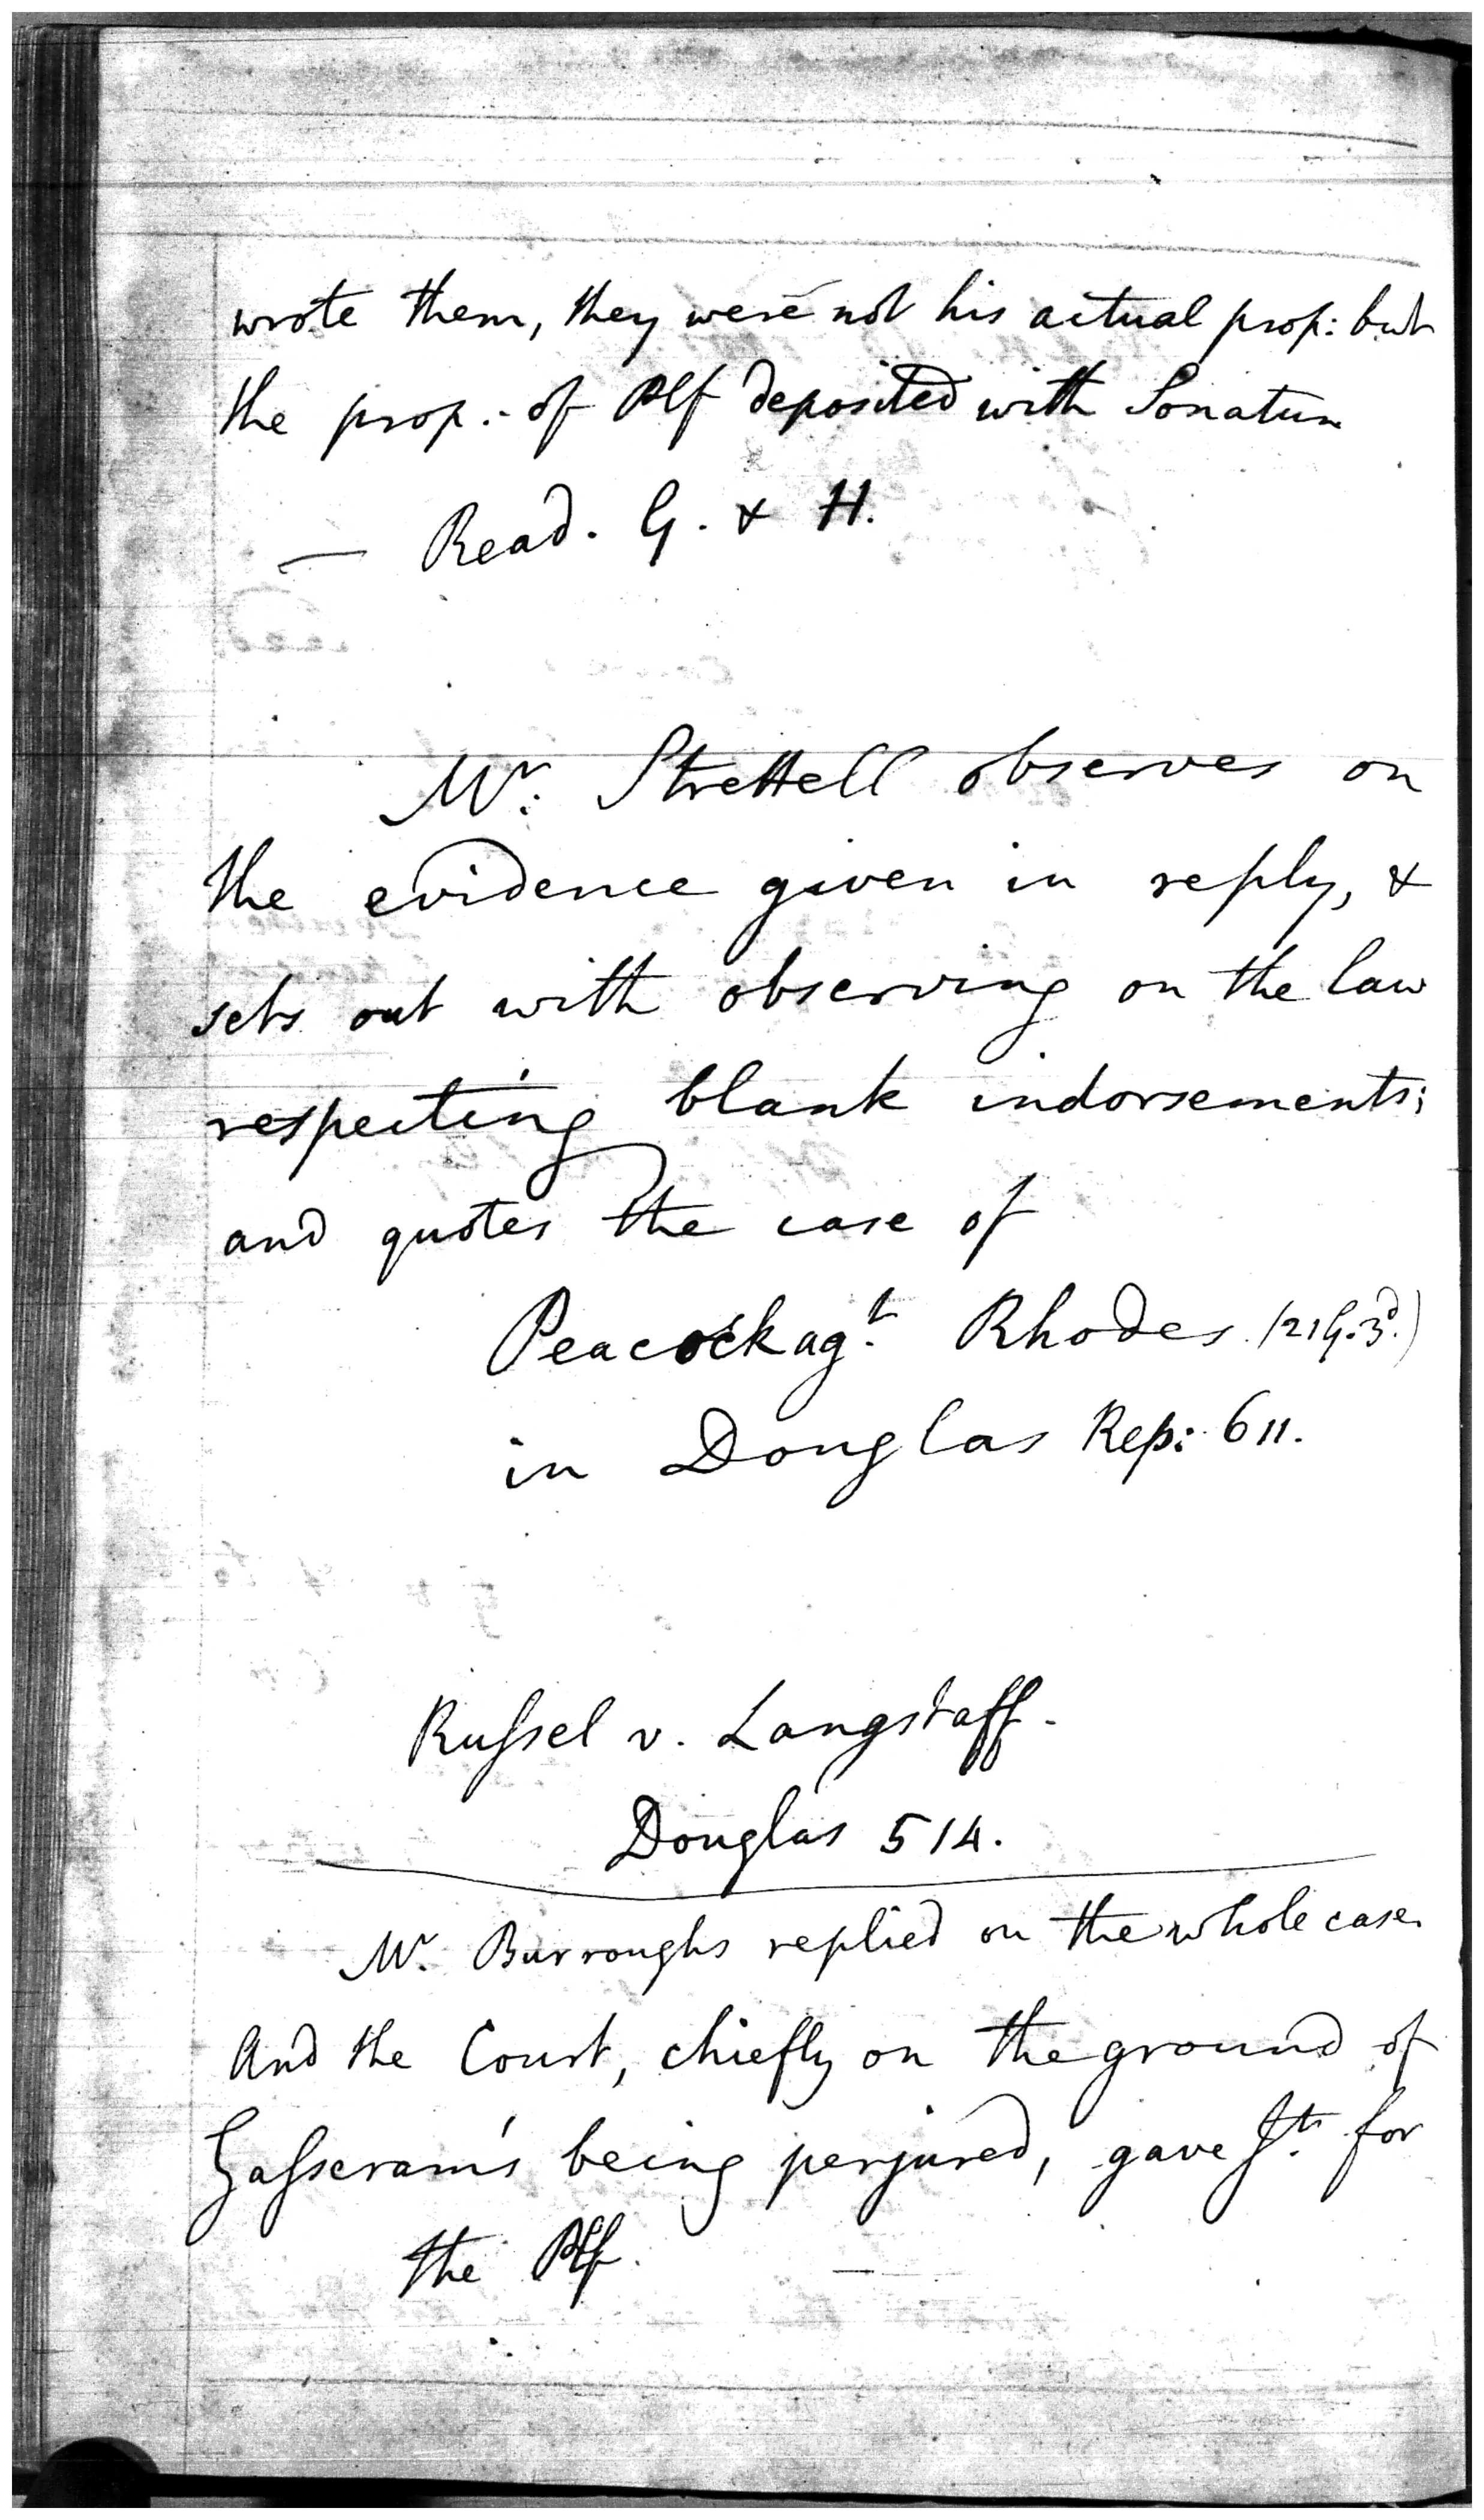 wrote them, they were not his actual prop: but
the prop: of Plf deposited with Sonatun
— Read. G. & H.
Mr. Strettell observes on
the evidence given in reply, &
sets out with observing on the law
respecting blank indorsements;
and quotes the case of
Peacock agt. Rhodes (21 G. 3d.)
in Douglas Rep: 611.
Rufsel v. Langstaff.
Douglas 514.
Mr. Burroughs replied on the whole case.
And the Court, chiefly on the ground of
Gafseram's being perjured, gave Jt. for
the Plf. —